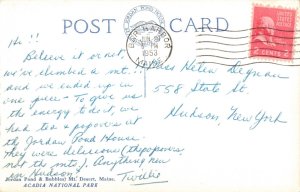 POST CARD
BAR HARBOR
1953
MAINE
2 CENTS 2
Hi!!
Believe it or not,
we've climbed a mt!!
and we ended up in
one piece - To give us
the energy to do it we
had tea & popovers at
the Jordan Pond House.
They were delicious! (the popovers
not the mts). Anything new
in Hudson?
Miss Helen
558 State St.
Hudson, New York
Jordan Pond & Bubbles, Mt. Desert, Maine.
ACADIA NATIONAL PARK